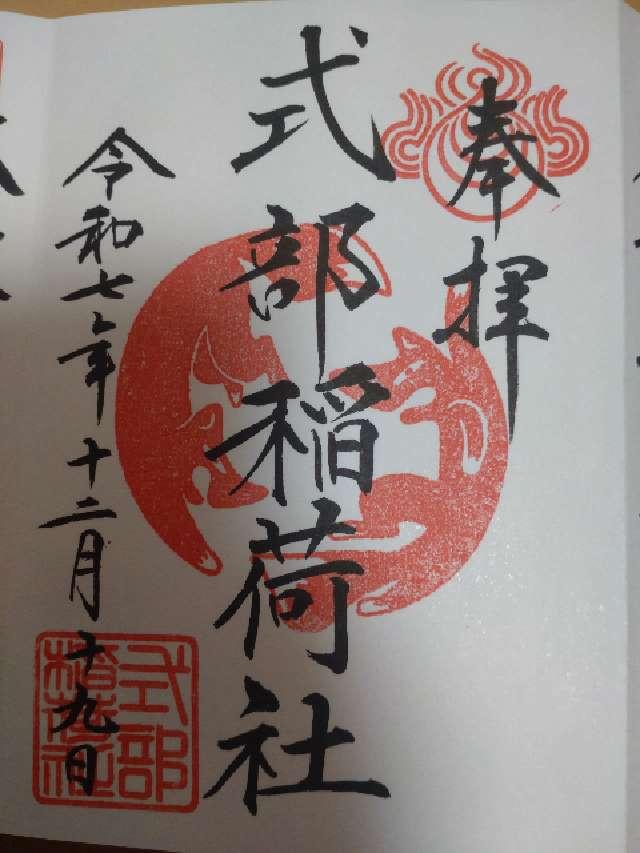 奉拝
式部稲荷社
令和七年十二月十九日
式部
稲荷社